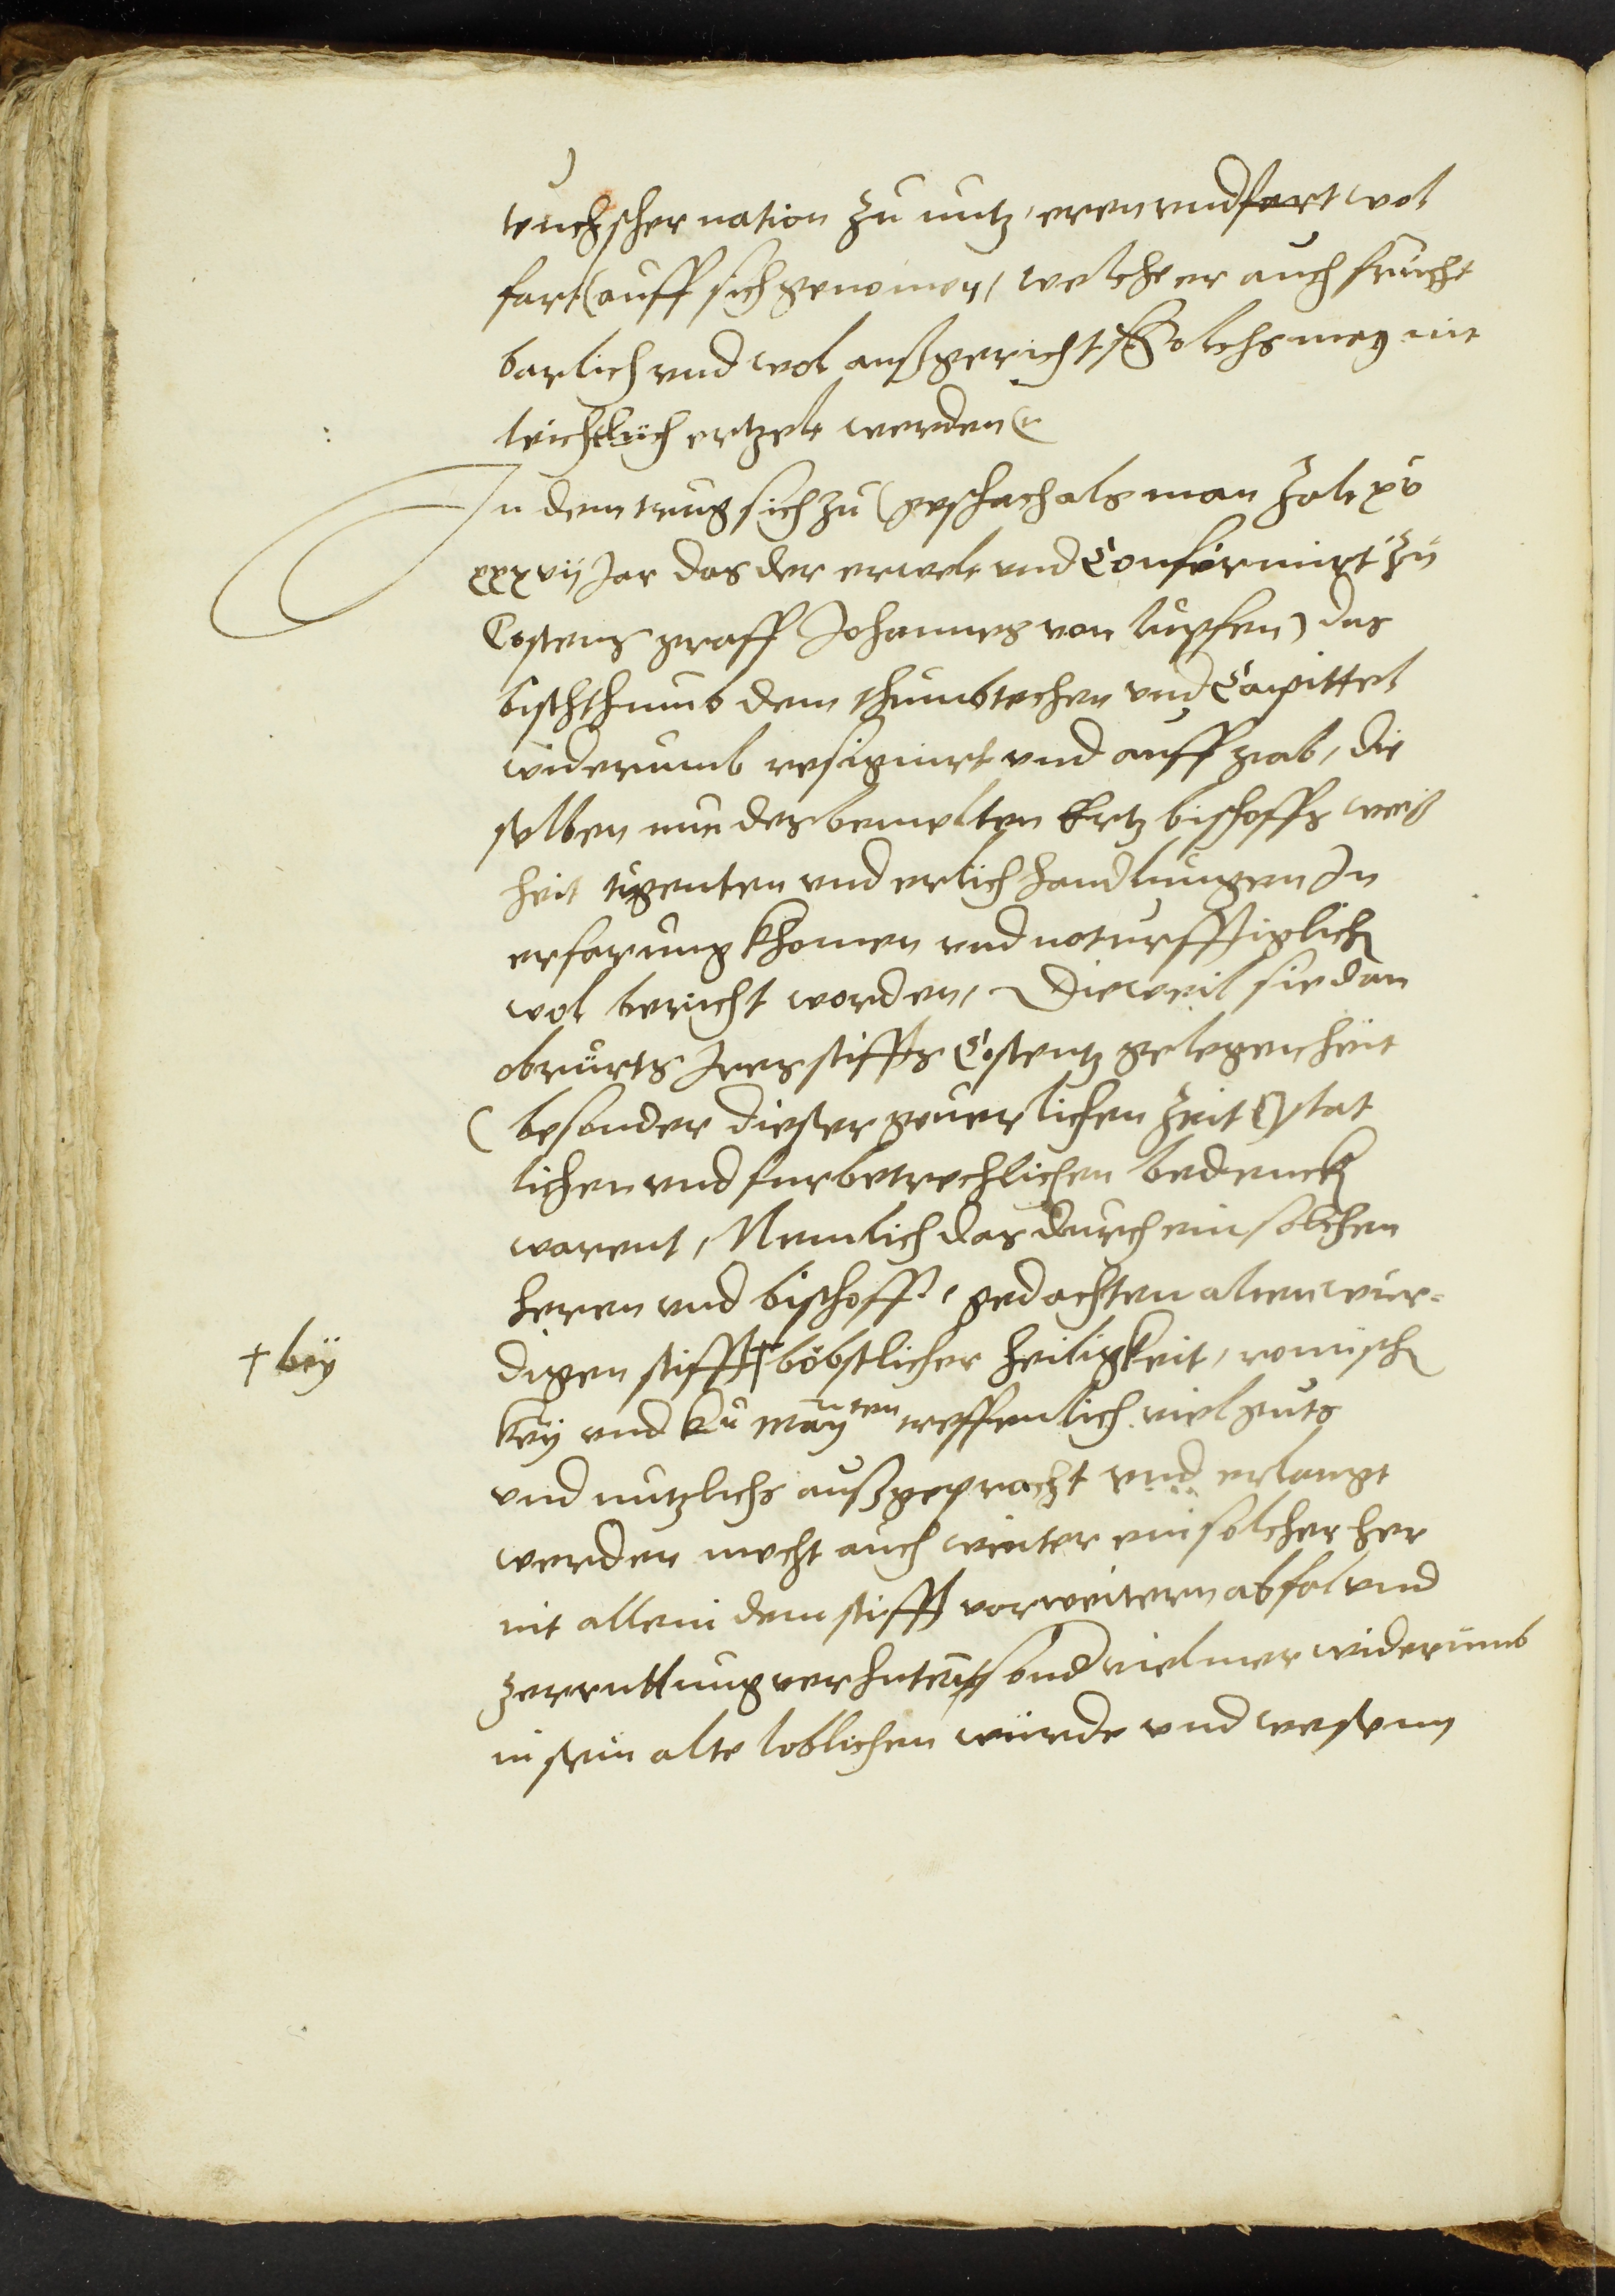 teuchscher nation zu nutz, eren vnd fart wol
fart (auff sich genomen, welche er auch frucht
barlich vnd wol außgericht solchs mag nit
leichtlich ertzelt werden
In dem trug sich zu (geschach als man zalt xv
xxxvij Jar das der erwelt vnd Confirmirt zu
Costens graff Johannes von Lupffen) das
bischthumb dem thumbtechen vnd Capittel
widerumb resignirt vnd auff gab, die
selben nun des bemelten Ertz bischoffs weis
heit tugenten vnd erlich handlungen In
erfarung khomen vnd noturfftiglich
wol bericht worden, Dieweil sie dan
Ires stiffts Costentz gelegenheit
(besonder dieser geuerlichen zeit) stat
lichen vnd furbetrechlichen bedenck
warent, Nemlich das durch ein solchen
heren vnd bischoff, gedachten alten wir-
digen stifft + böbstlicher heiligkeit, romisch
+ beÿ
keÿ vnd ku maÿten treffenlich viel guts
vnd nutzlichs außgepracht vnd erlangt
werden mecht auch weiter ein solcher her
nit allein dem stifft vor weiterm abfal vnd
zerruttung verhuten sond vielmer widerumb
in sein alte loblichen wurde vnd wesenn